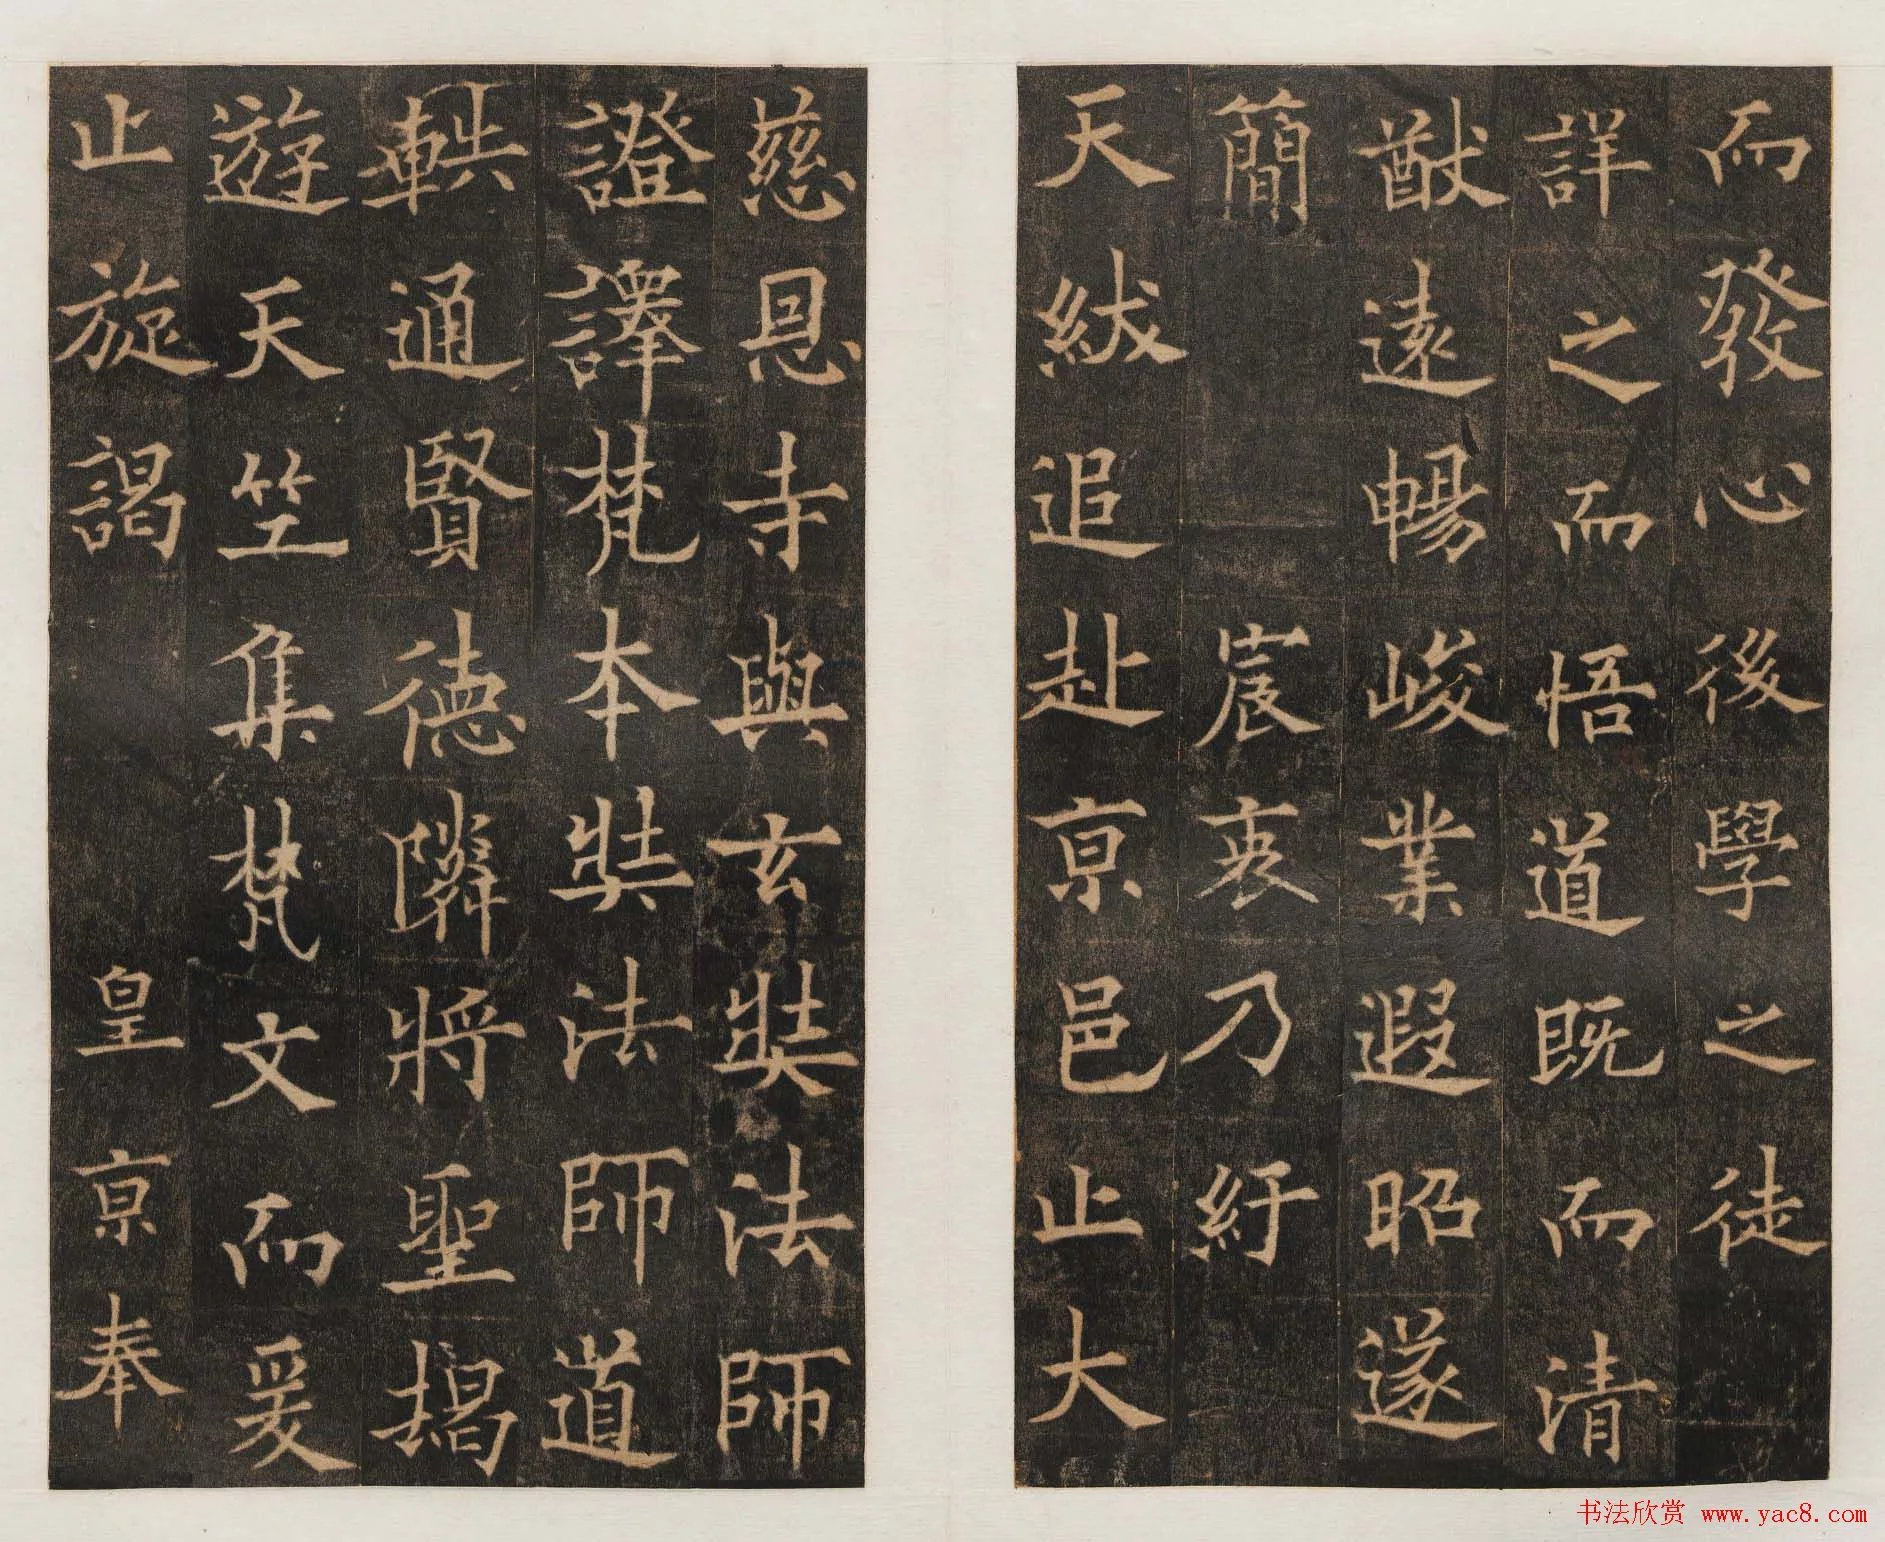 而發心後學之徒
詳之而悟道既而清
猷遠暢峻業遐昭遂
簡　宸衷乃紆
天紱追赴亰邑止大
慈恩寺與玄奘法師
證譯梵本奘法師道
軼通賢德隣將聖揭
遊天竺集梵文而爰
止旋謁　皇亰奉
书法欣赏 www.yac8.com